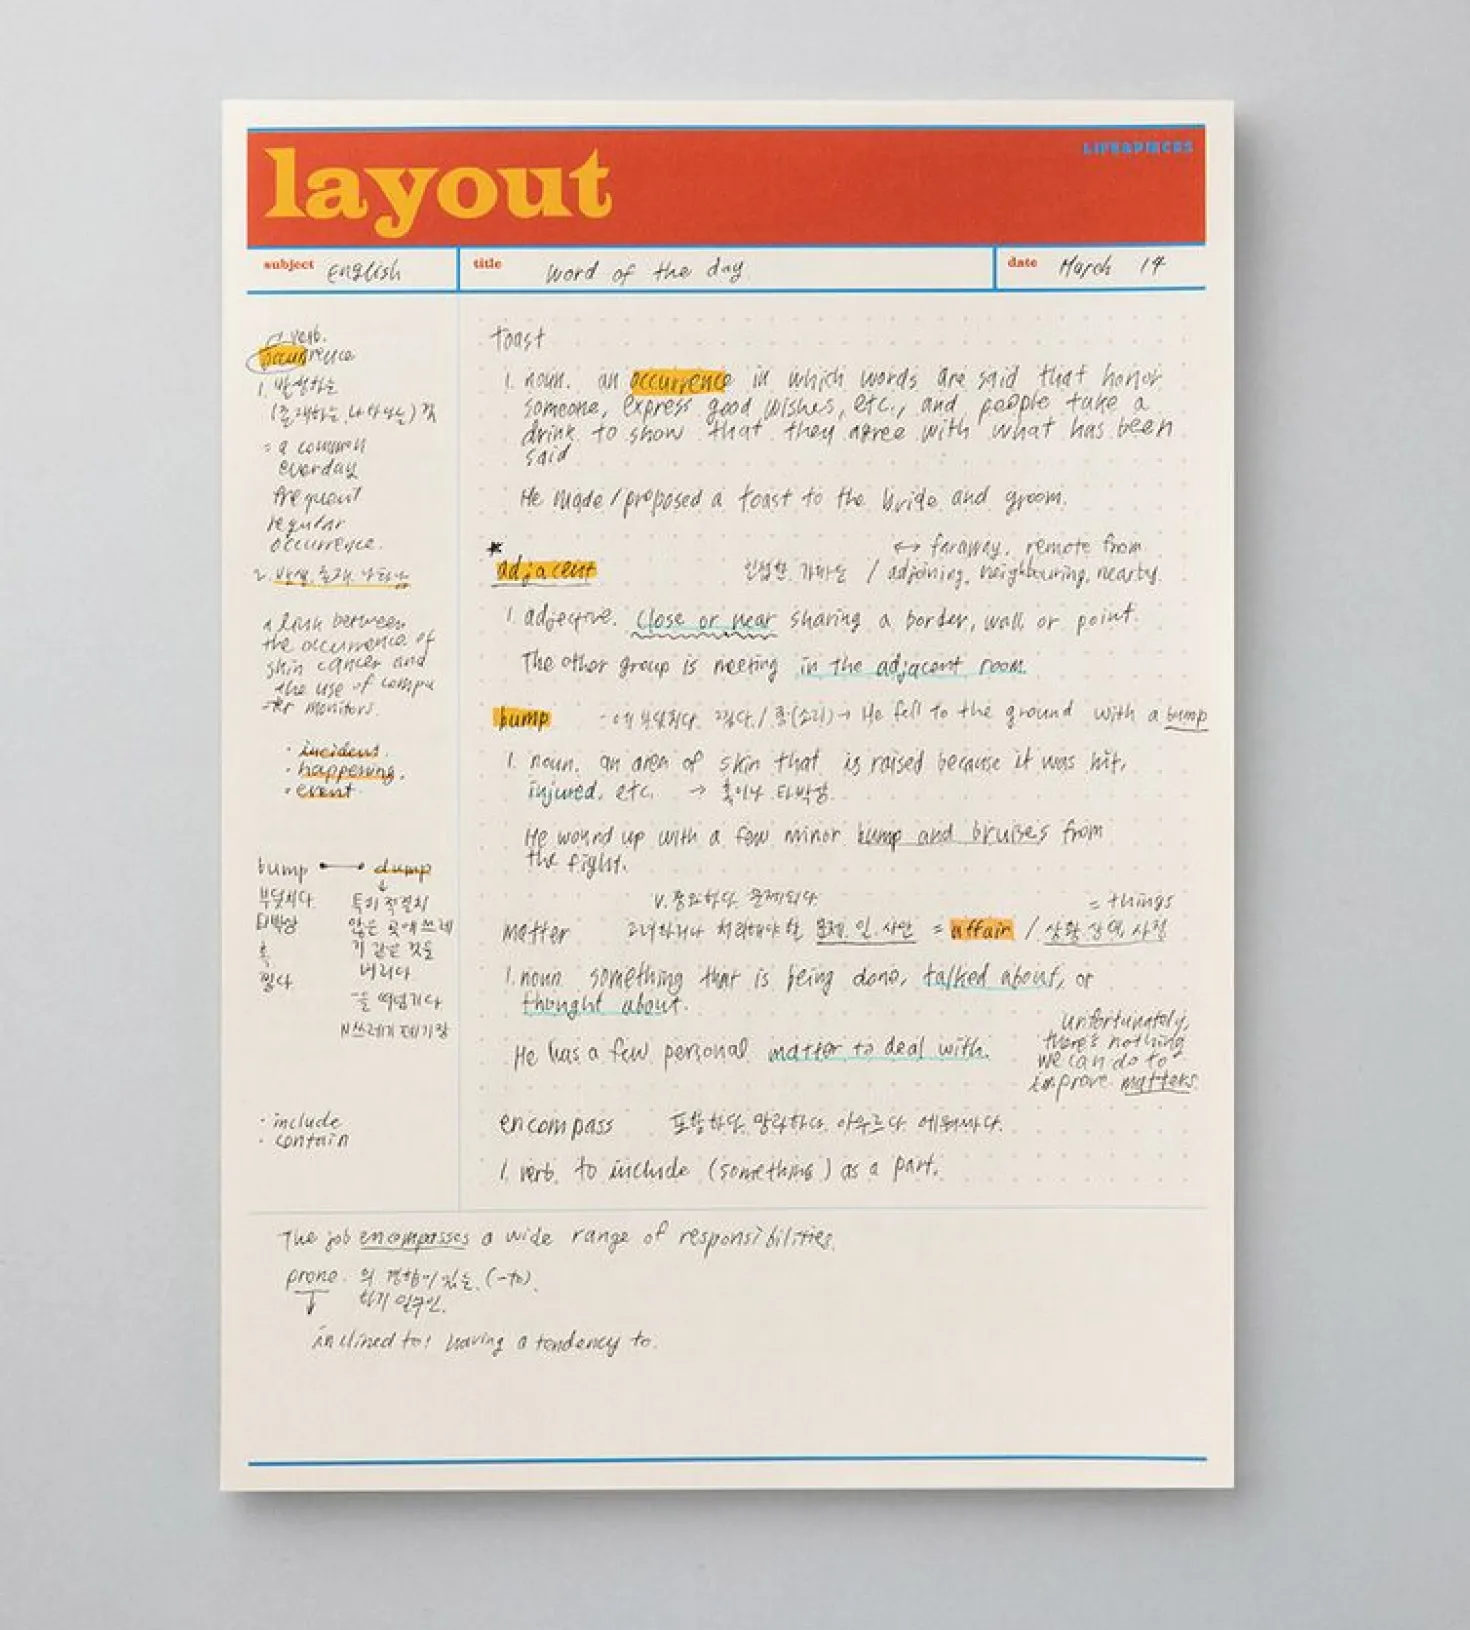 layout
LIFE&PIECES
subject English
title word of the day
date March 14
verb.
occurrence
1. 발생하는
(존재하는, 나타나는) 것
= a common
everday
frequent
regular
occurrence.
2. 발생, 존재, 나타남
a link between
the occurrence of
skin cancer and
the use of compu
-ter monitors.
· incident
· happening.
· event
bump dump
부딪치다.
타박상
혹
찧다
특히 적절치
않은 곳에 쓰레
기 같은 것을
버리다
-을 떠넘기다
N 쓰레기 폐기장
· include
· contain
toast
1. noun. an occurrence in which words are said that honor
someone, express good wishes, etc., and people take a
drink to show that they agree with what has been
said
He made / proposed a toast to the bride and groom.
↔ faraway. remote from
adjacent 인접한. 가까운 / adjoining, neighbouring, nearby.
1. adjective. close or near sharing a border, wall or point.
The other group is meeting in the adjacent room.
bump -에 부딪치다. 찧다. / 쿵(소리) → He fell to the ground with a bump
1. noun. an area of skin that is raised because it was hit,
injured, etc. → 혹이나 타박상.
He wound up with a few minor bump and bruises from
the fight.
v. 중요하다. 문제되다.
= things
matter 고려하거나 처리해야 할 문제. 일. 사안 = affair / 상황. 상태. 사정
1. noun something that is being done, talked about, or
thought about.
He has a few personal matter to deal with.
Unfortunately,
there's nothing
we can do to
improve matters.
encompass 포함하다. 망라하다. 아우르다. 에워싸다.
1. verb. to include (something) as a part.
The job encompasses a wide range of responsibilities.
prone. 의 경향이 있는. (-to).
하기 일쑤인.
inclined to: having a tendency to.